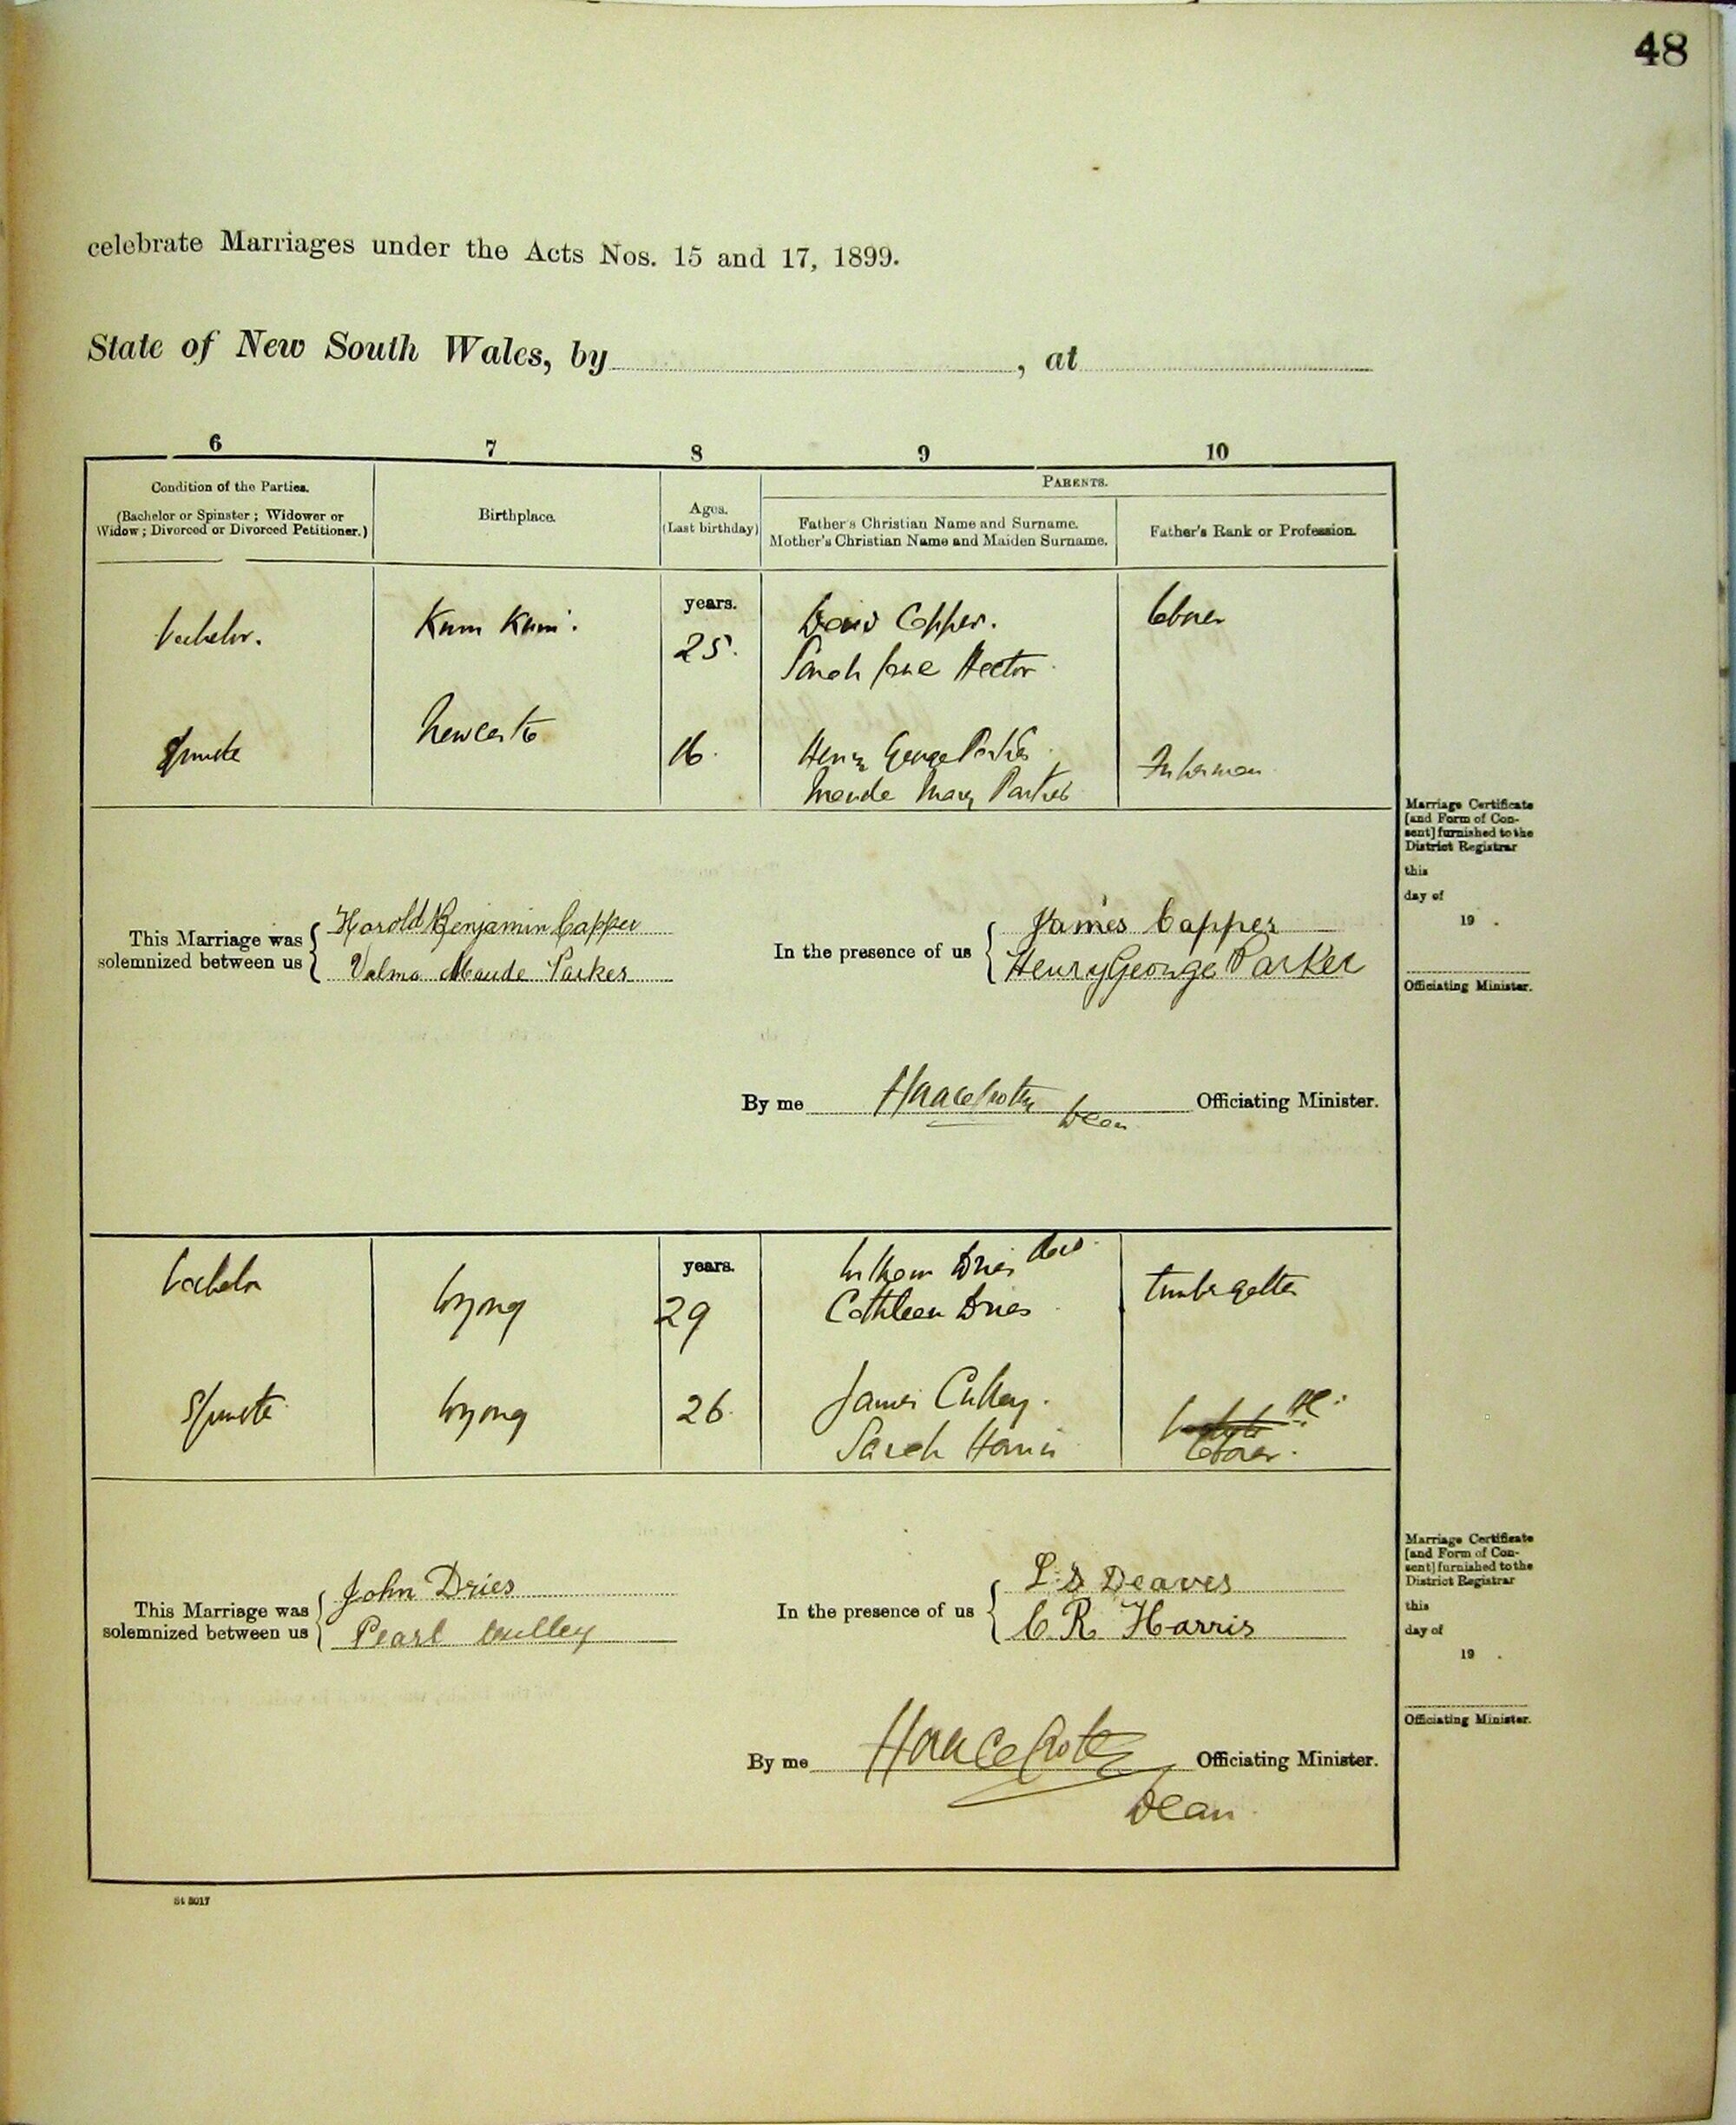 48
celebrate Marriages under the Acts Nos. 15 and 17, 1899.
State of New South Wales, by , at
6 7 8 9 10
Condition of the Parties.
(Bachelor or Spinster ; Widower or
Widow ; Divorced or Divorced Petitioner.)
Birthplace.
Ages.
(Last birthday)
PARENTS.
Father's Christian Name and Surname.
Mother's Christian Name and Maiden Surname.
Father's Rank or Profession.
bachelor.
Kum Kum.
years.
25.
David Capper.
Sarah Jane Hector
Spinster
Newcastle
16.
Henry George Parker
Maude Mary Parker
Fisherman
Marriage Certificate
[and Form of Con-
sent] furnished to the
District Registrar
this
day of
19 .
Officiating Minister.
This Marriage was
solemnized between us
Harold Benjamin Capper
Valma Maude Parker
In the presence of us
James Capper
Henry George Parker
By me Dean Officiating Minister.
bachelor
Wyong
years.
29
William Dries
Cathleen Dries
timber getter
Spinster
Wyong
26.
James Culley.
Sarah Harris
Marriage Certificate
[and Form of Con-
sent] furnished to the
District Registrar
this
day of
19 .
Officiating Minister.
This Marriage was
solemnized between us
John Dries
Pearl Culley
In the presence of us
L. S Deaves
C. R. Harris
By me Officiating Minister.
Dean
St 5017